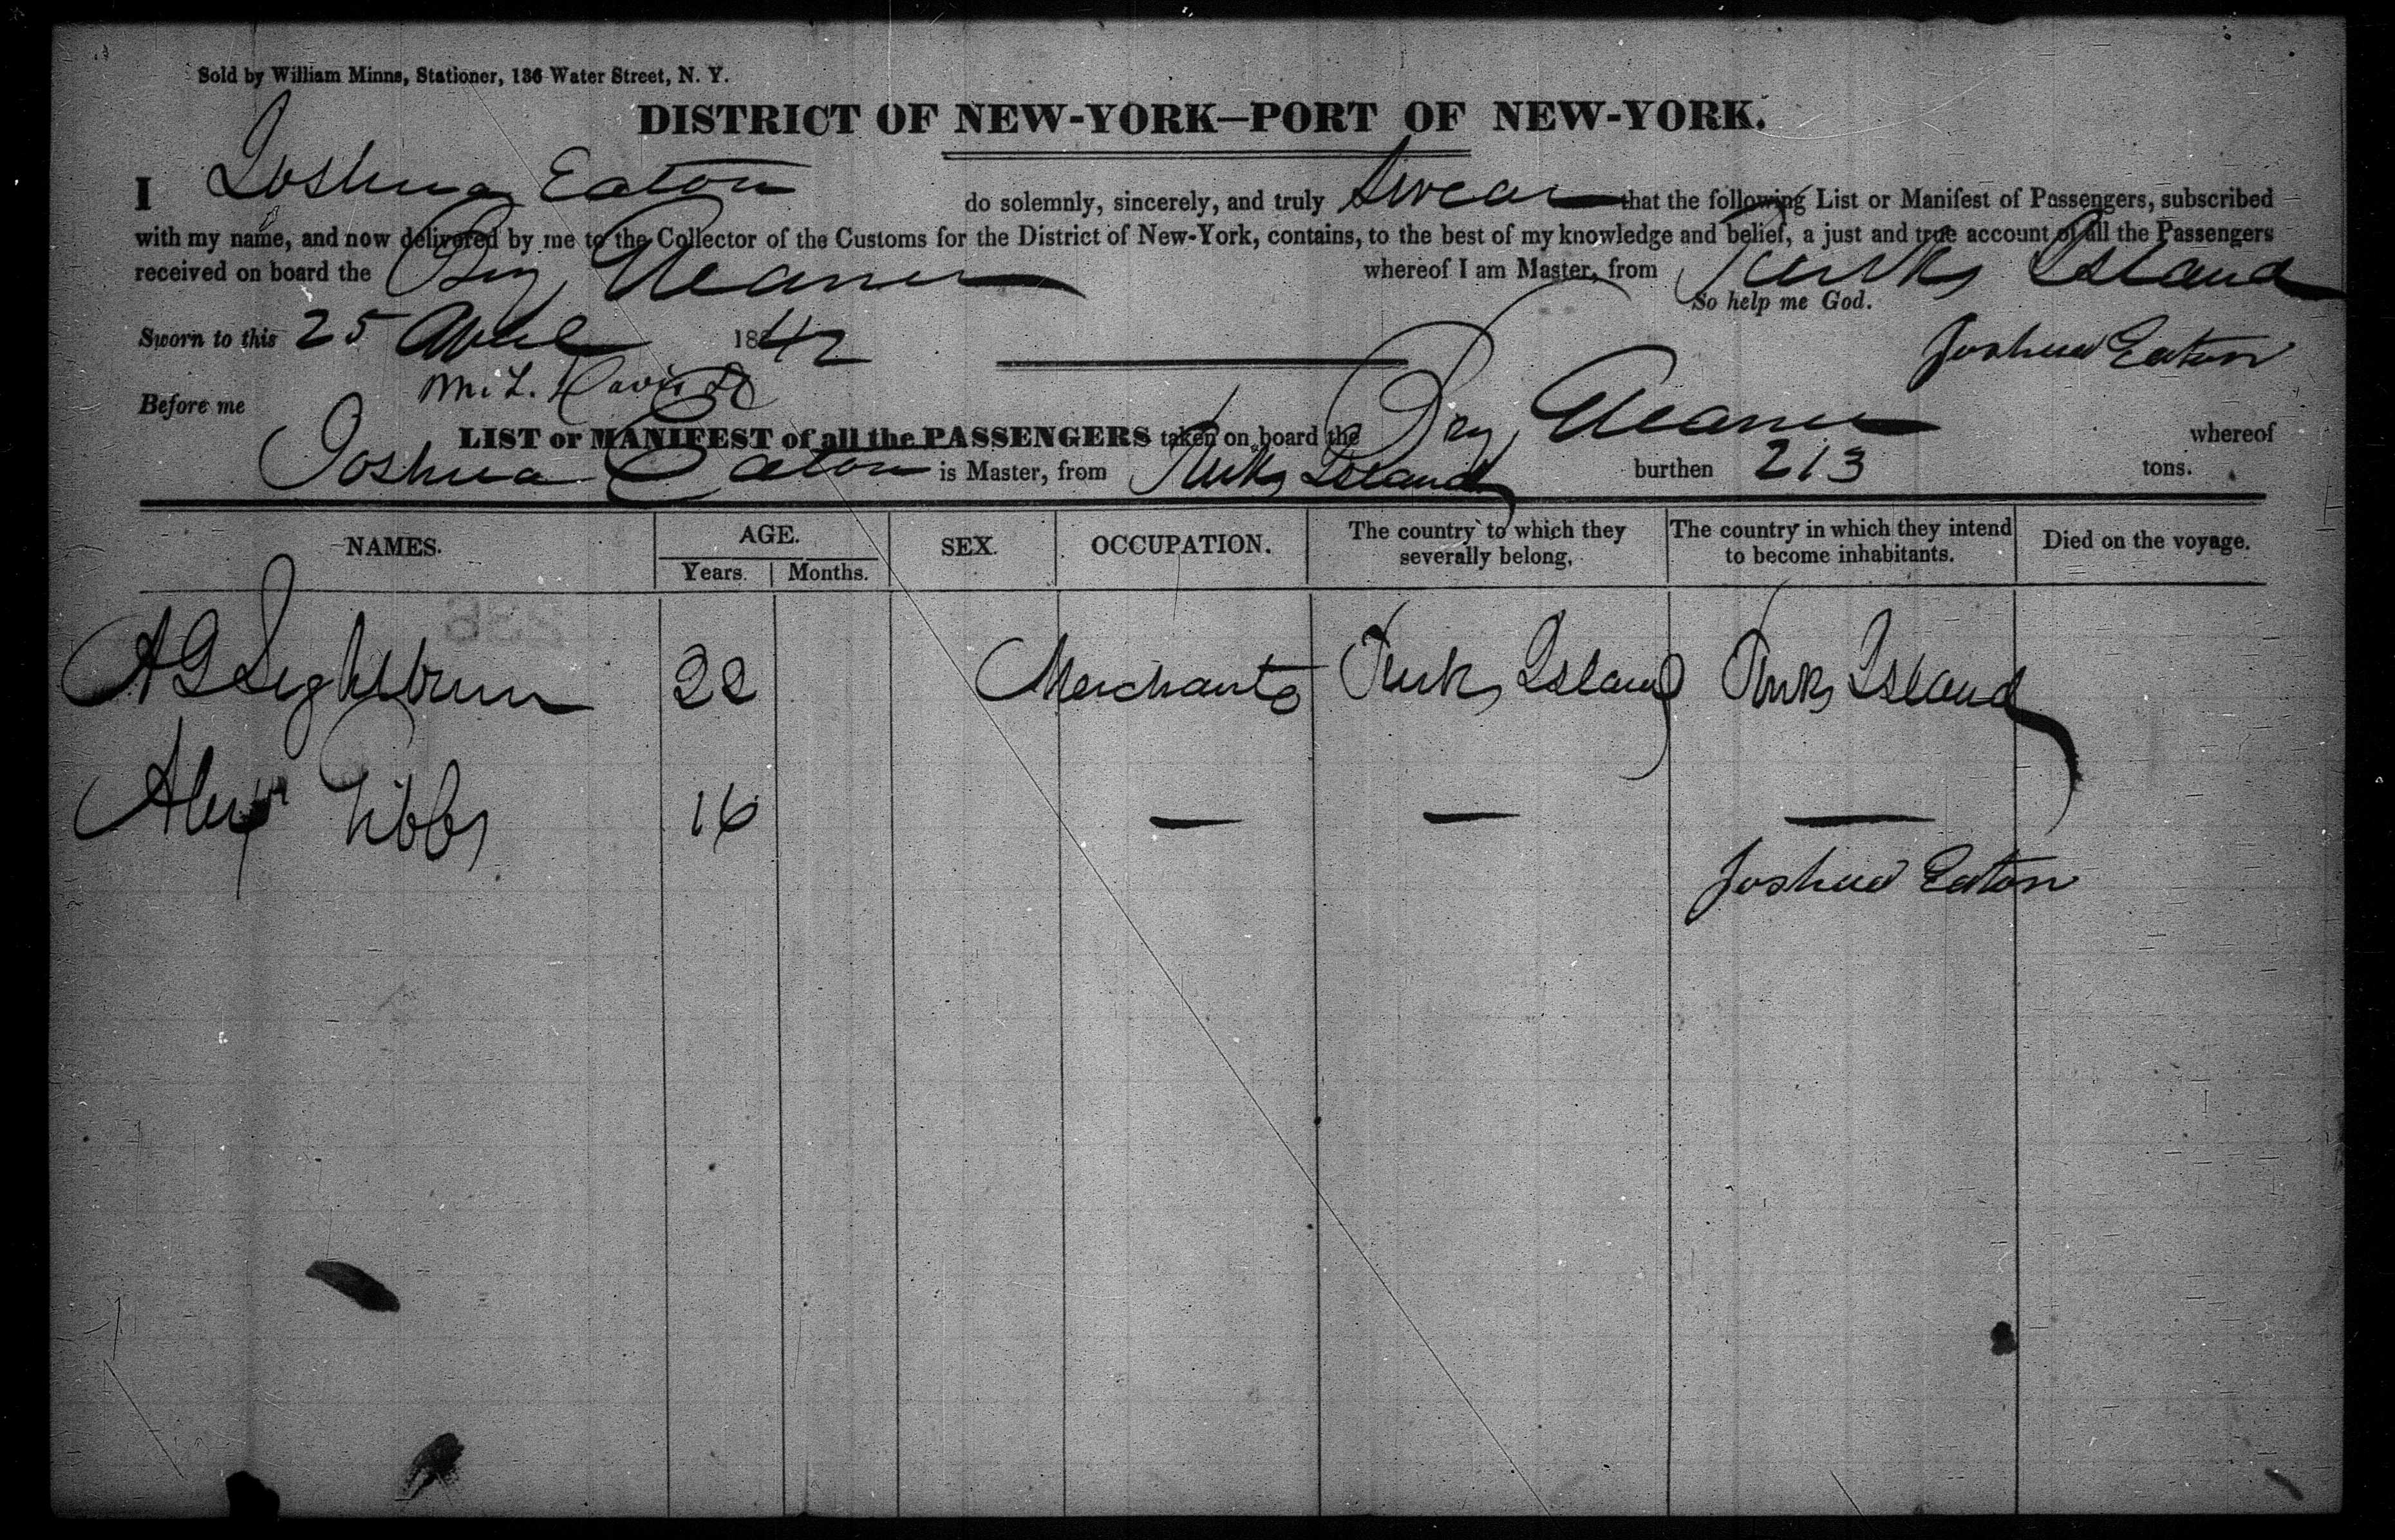 Sold by William Minns, Stationer, 136 Water Street, N. Y.
DISTRICT OF NEW-YORK—PORT OF NEW-YORK.
I Joshua Eaton do solemnly, sincerely, and truly Swear that the following List or Manifest of Passengers, subscribed
with my name, and now delivered by me to the Collector of the Customs for the District of New-York, contains, to the best of my knowledge and belief, a just and true account of all the Passengers
received on board the Brig Gleaner whereof I am Master, from Turks Island
So help me God.
Sworn to this 25 April 1842 Joshua Eaton
Before me
LIST or MANIFEST of all the PASSENGERS taken on board the Brig Gleaner whereof
Joshua Eaton is Master, from Turks Island burthen 213 tons.
NAMES. AGE. SEX. OCCUPATION. The country to which they severally belong, The country in which they intend to become inhabitants. Died on the voyage.
Years. Months.
A G Lightburn 22 Merchants Turks Island Turks Island
Alexr Tibbs 16 — — —
Joshua Eaton